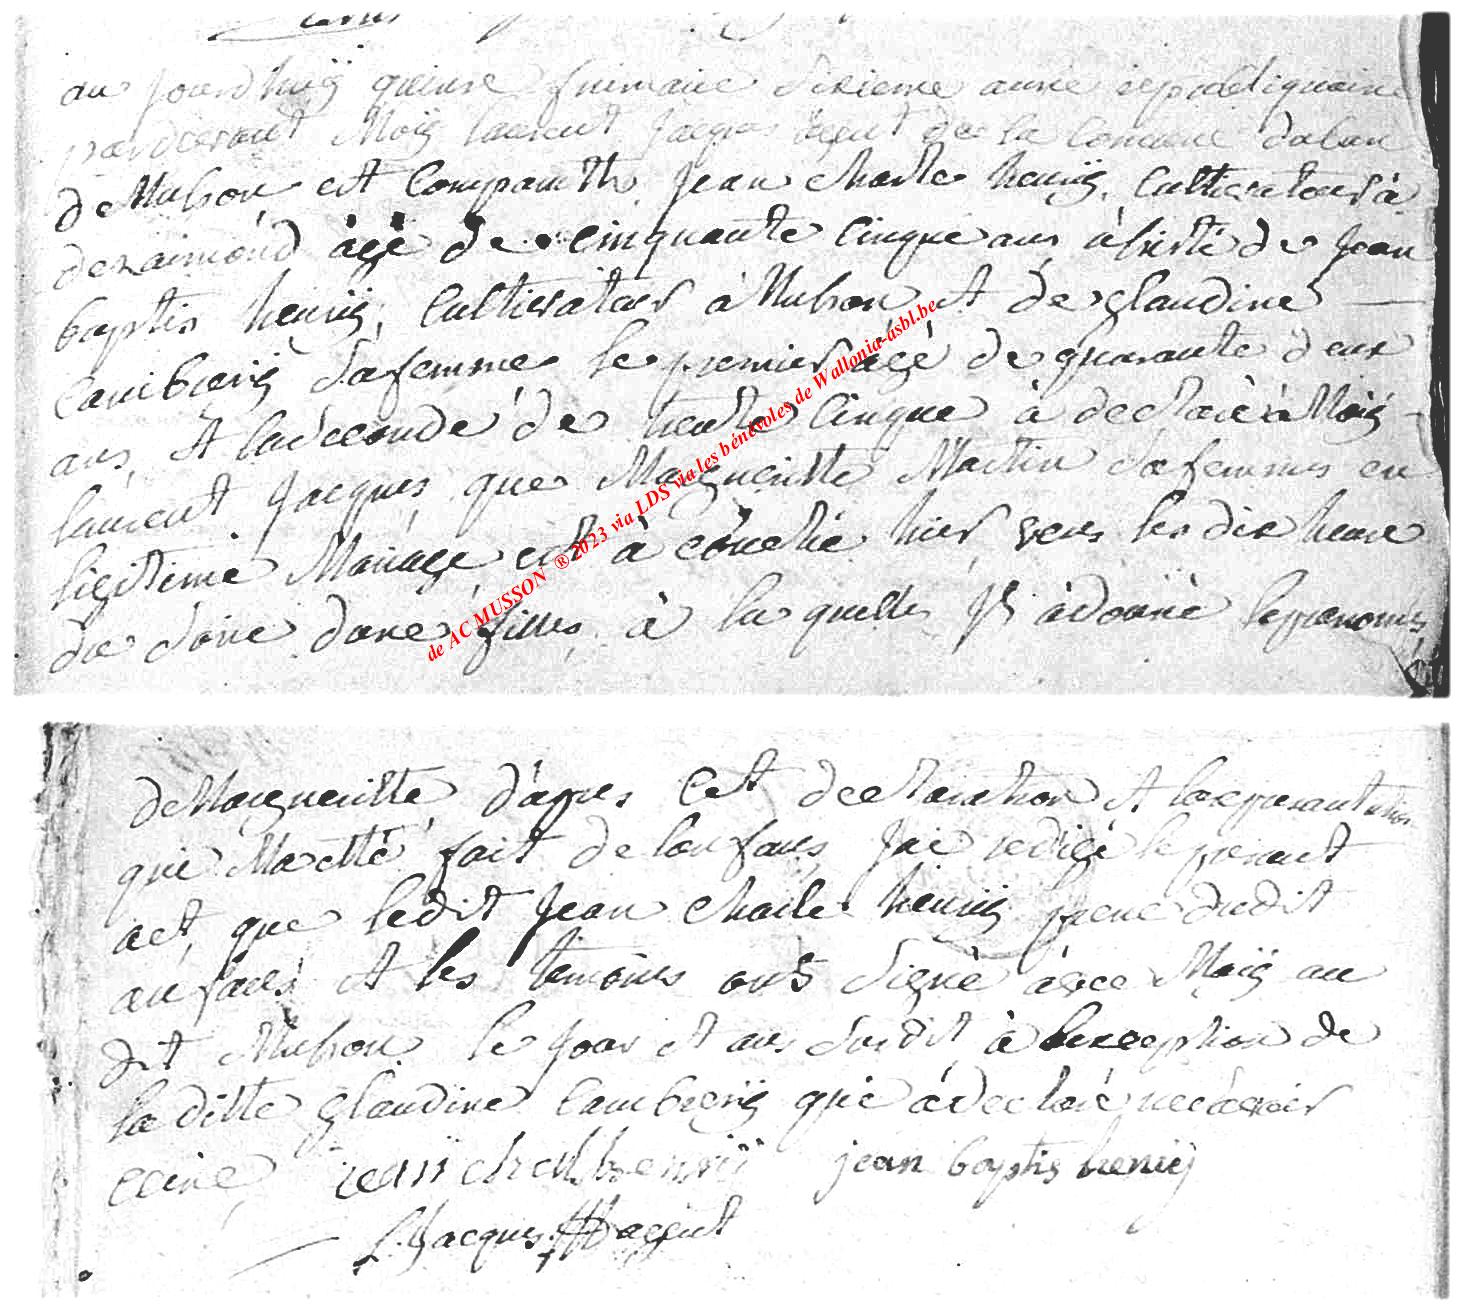 au jourdhuÿ quinse frimaire sixieme anné republiquaine
pardevant Moÿ laurent Jacques agent de la comune
de Musson est Comparuth Jean charle henrÿ Cultivateur à
agé de cinquante Cinque ans àsisté de Jean
baptis henrÿ, Cultivateur à Musson et de glaudine
Cambrerÿ safemme le premier agé de quarante deux
ans et laseconde de trente Cinque à declaré à Moÿ
laurent Jacques que Margueritte Martin safemmes en
legitime Mariage est à couché hier vers les dix heure
de soire dune filles à la quelles Jl àdonné leprenoms
de Margueritte d'apres Cet declaration et
que Macté fait de lenfans Jai redigé le presant
act que ledit Jean Charle henrÿ dudit
anfans et les temoins ons signé avec Moÿ au
dit Musson le Jour et ans susdit à lexception de
la ditte glaudine Cambrerÿ qui à declaré ne savoir
ecrire jean charl henrÿ jean baptis henrÿ
L. Jacques agent
de AC MUSSON ® 2023 via LDS via les bénévoles de Wallonia-asbl.be